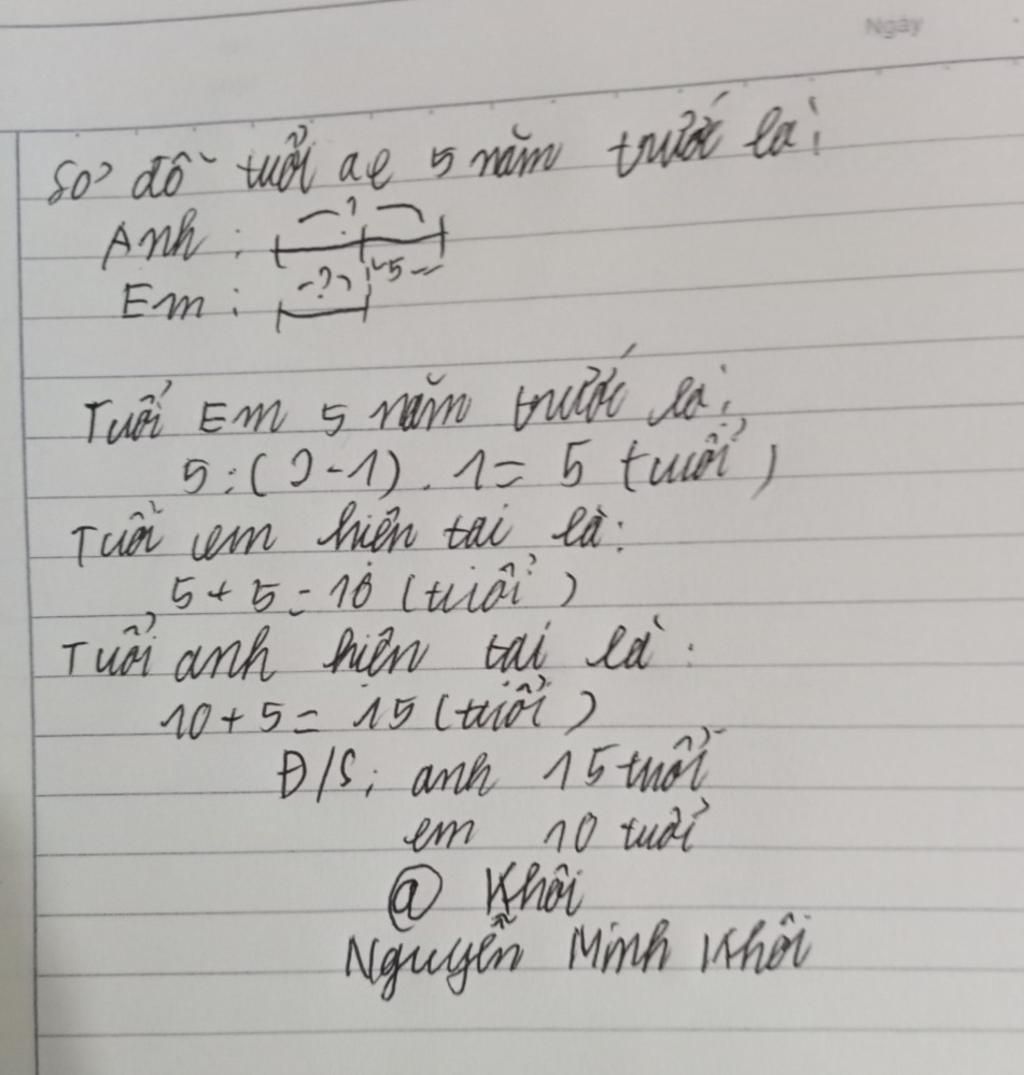 Ngày
Sơ đồ tuổi ae 5 năm trước là:
Anh : ?
5
Em : ?
Tuổi Em 5 năm trước là:
5 : (2 - 1) . 1 = 5 (tuổi)
Tuổi em hiện tại là:
5 + 5 = 10 (tuổi)
Tuổi anh hiện tại là:
10 + 5 = 15 (tuổi)
Đ/S: anh 15 tuổi
em 10 tuổi
@ Khôi
Nguyễn Minh Khôi